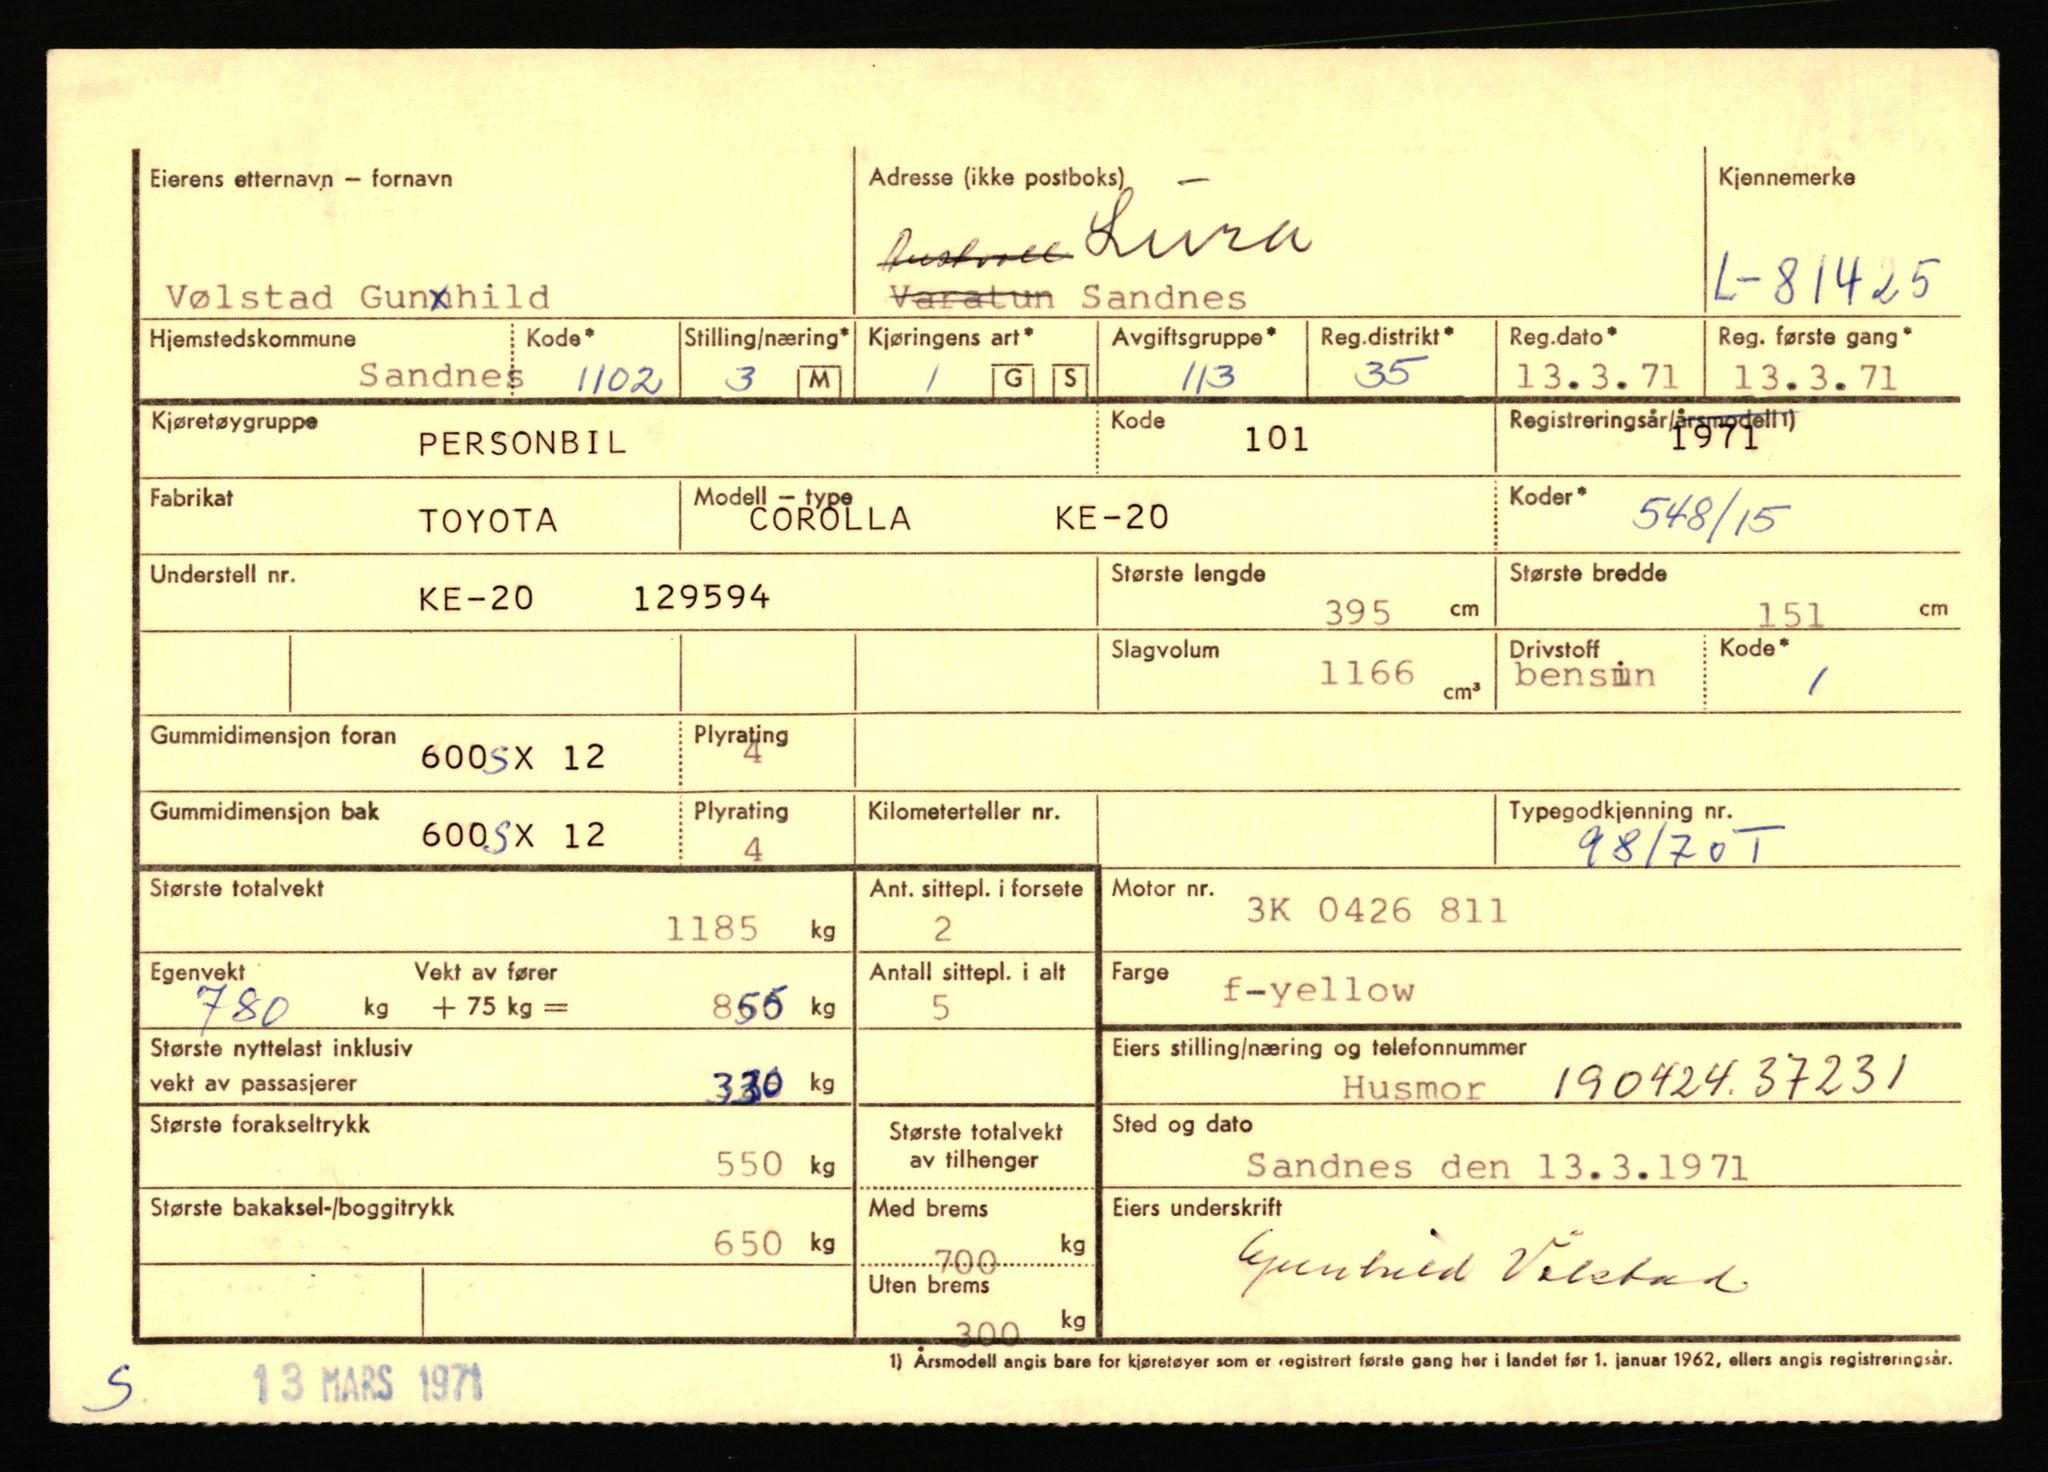 Eierens etternavn – fornavn Adresse (ikke postboks) Kjennemerke
Lura
Vølstad Gunxhild Varatun Sandnes L-81425
Hjemstedskommune Kode* Stilling/næring* Kjøringens art* Avgiftsgruppe* Reg.distrikt* Reg.dato* Reg. første gang*
Sandnes 1102 3 M 1 G S 113 35 13.3.71 13.3.71
Kjøretøygruppe Kode Registreringsår/årsmodell 1)
PERSONBIL 101 1971
Fabrikat Modell – type Koder*
TOYOTA COROLLA KE-20 548/15
Understell nr. Største lengde Største bredde
KE-20 129594 395 cm 151 cm
Slagvolum Drivstoff Kode*
1166 cm³ bensin 1
Gummidimensjon foran Plyrating
600S X 12 4
Gummidimensjon bak Plyrating Kilometerteller nr. Typegodkjenning nr.
600S X 12 4 98/70T
Største totalvekt Ant. sittepl. i forsete Motor nr.
1185 kg 2 3K 0426 811
Egenvekt Vekt av fører Antall sittepl. i alt Farge
780 kg + 75 kg = 855 kg 5 f-yellow
Største nyttelast inklusiv Eiers stilling/næring og telefonnummer
vekt av passasjerer 330 kg Husmor 190424.37231
Største forakseltrykk Største totalvekt Sted og dato
550 kg av tilhenger Sandnes den 13.3.1971
Største bakaksel-/boggitrykk Med brems Eiers underskrift
650 kg 700 kg Gunhild Vølstad
Uten brems
300 kg
1) Årsmodell angis bare for kjøretøyer som er registrert første gang her i landet før 1. januar 1962, ellers angis registreringsår.
S. 13 MARS 1971